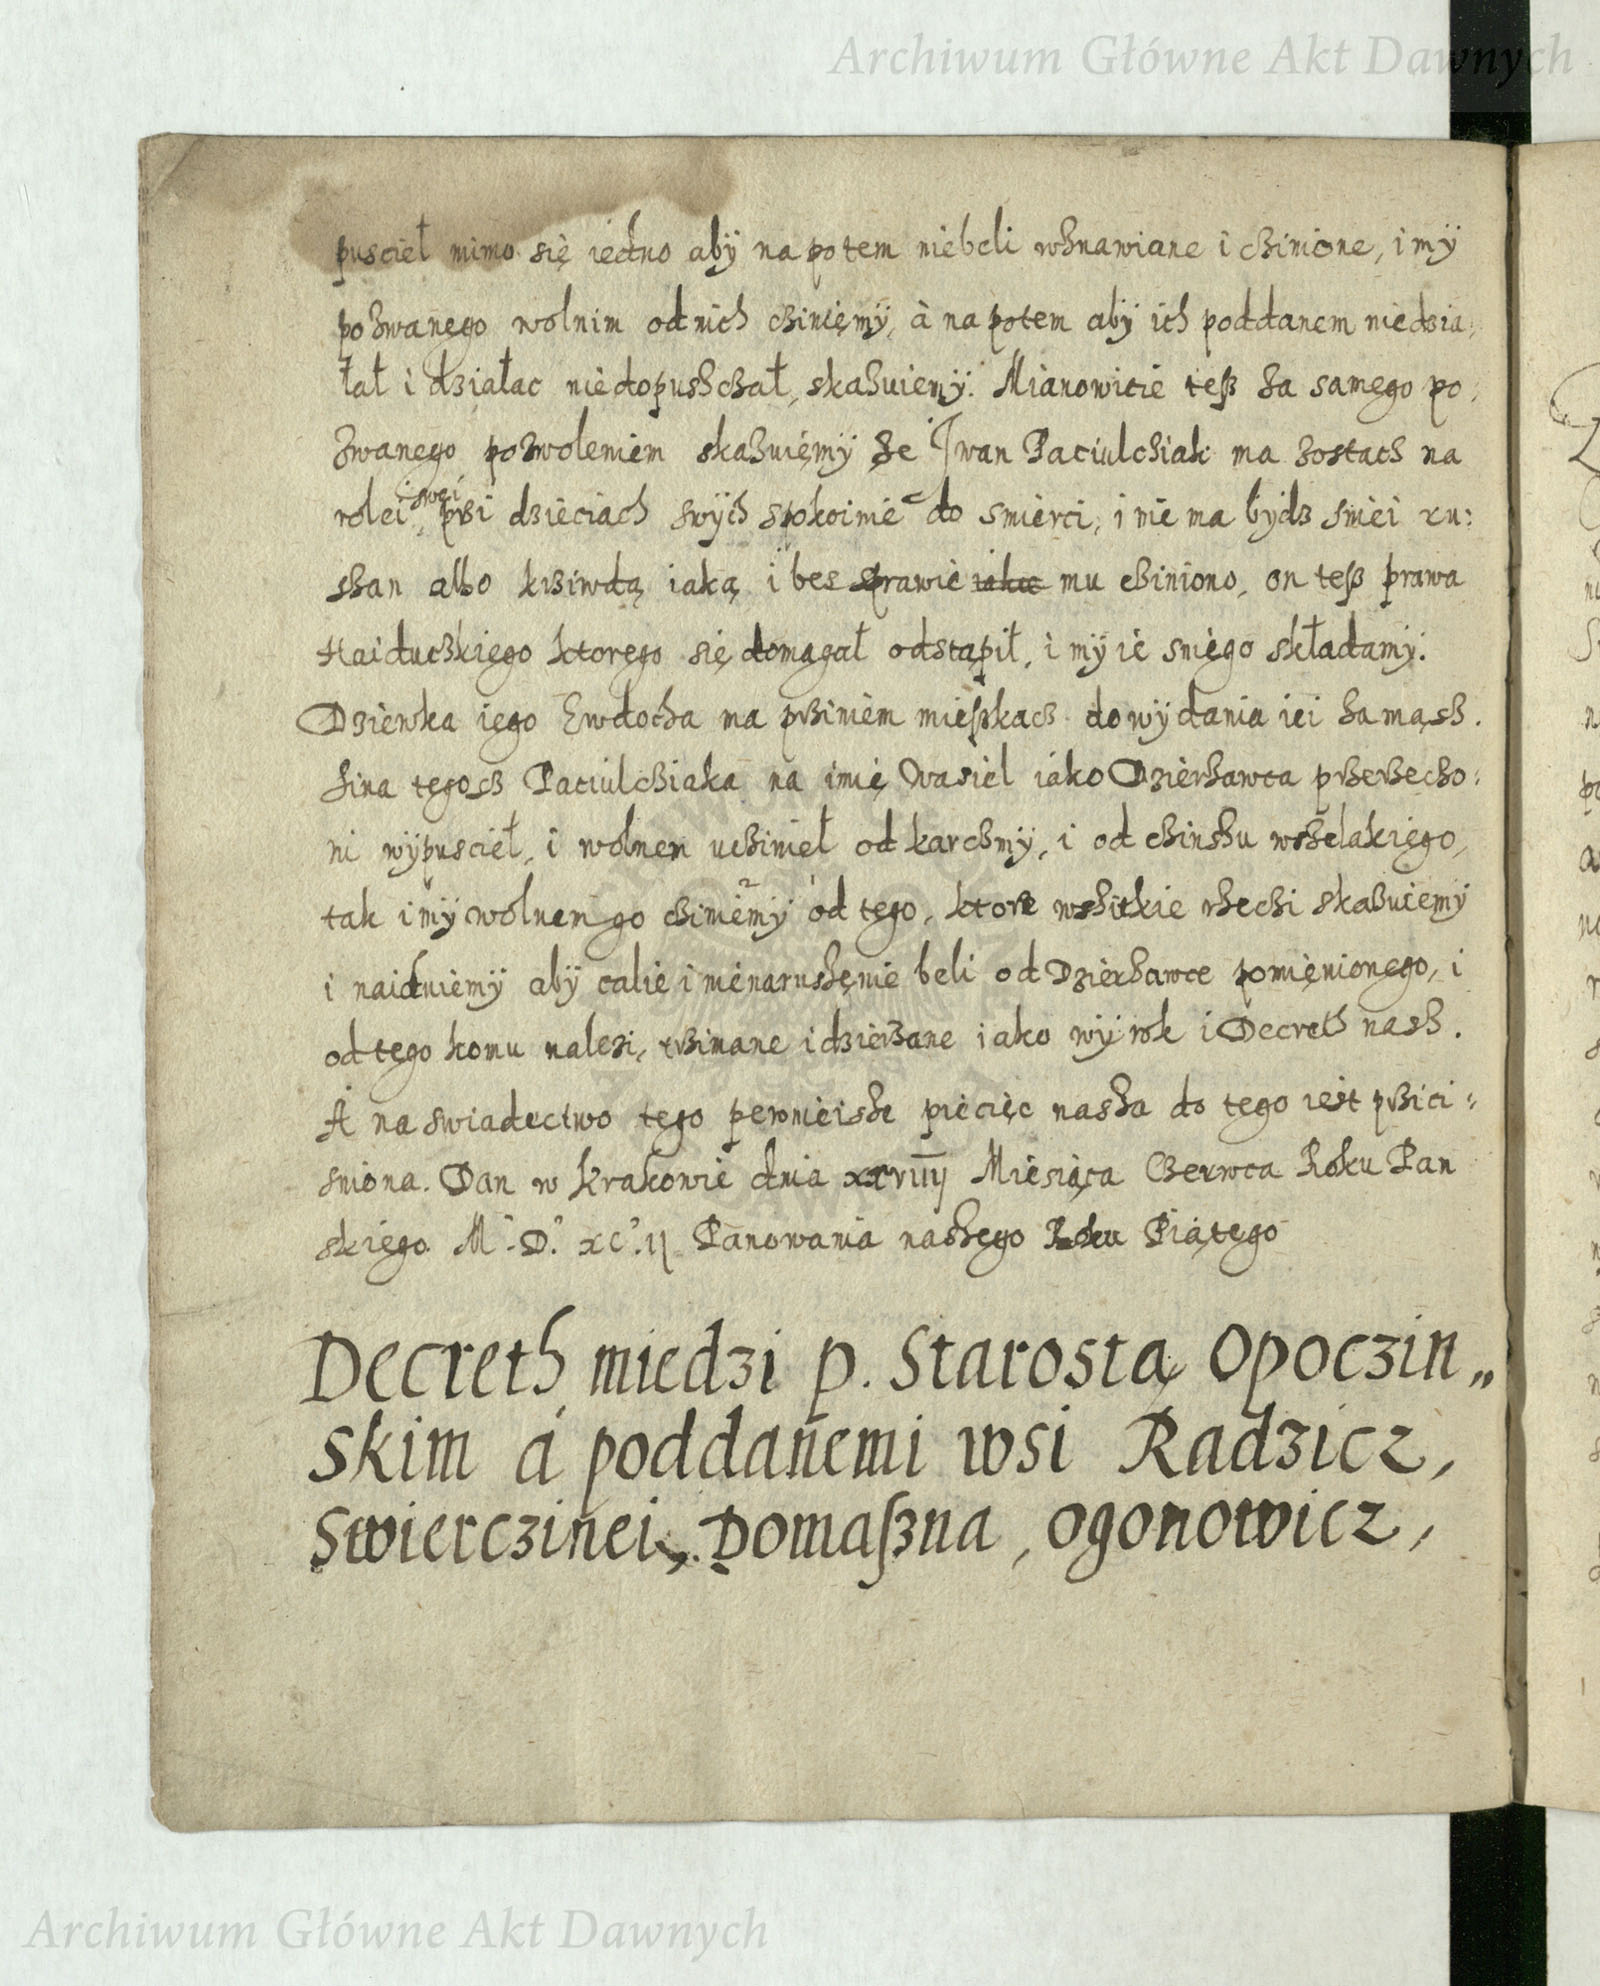 Archiwum Główne Akt Dawnych
puscieł mimo się iedno abÿ na potem niebeli wznawiane i czinione, i mÿ
pozwanego wolnim od nich cziniemÿ, à na potem abÿ ich poddanem niedzia,
łał i działac niedopushczał, skazuiemÿ. Mianowicie tesz za samego po,
zwanego pozwoleniem skazuięmÿ że Iwan Paciulcziak ma zostacz na
rolei swei, przi dzieciach swÿch spokoinie do smierci, i nie ma bÿdz sniei ru:
shan albo krziwdą iaką i bes prawie mu cziniono, on tesz prawa
Haiduczkięgo ktorego się domagał odstąpił, i mÿ ie sniego składamÿ.
Dziewka iego Ewdocha ma prziniem mieszkacz do wÿdania iei za mąsz.
Sina tegosz Paciulcziaka na imię Wasiel iáko Dzierzawca przerzecho:
ni wÿpuscieł, i wolnem uczinieł od karczmÿ, i od czinshu wshelakięgo,
tak i mÿ wolnem go czinięmÿ od tego, ktore wshitkie rzechi skazuiemÿ
i naiduiemÿ abÿ calie i nienarushęnie beli od Dzierzawce pomięnionego, i
od tego komu nalezi, trzimane i dzierzane iako wÿrok i Decreth nash.
A na swiadectwo tego pewnieishe piecięc nasha do tego iest przici:
sniona. Dan w Krakowie dnia xxviiij Miesiąca Czerwca Roku Pan
skięgo M. D. xc. ij Panowania nashego Roku Piątego
Decreth miedzi p. Starostą Opoczin„
skim á poddanemi wsi Radzicz,
Swierczinei, Domaszna, Ogonowicz,
Archiwum Główne Akt Dawnych